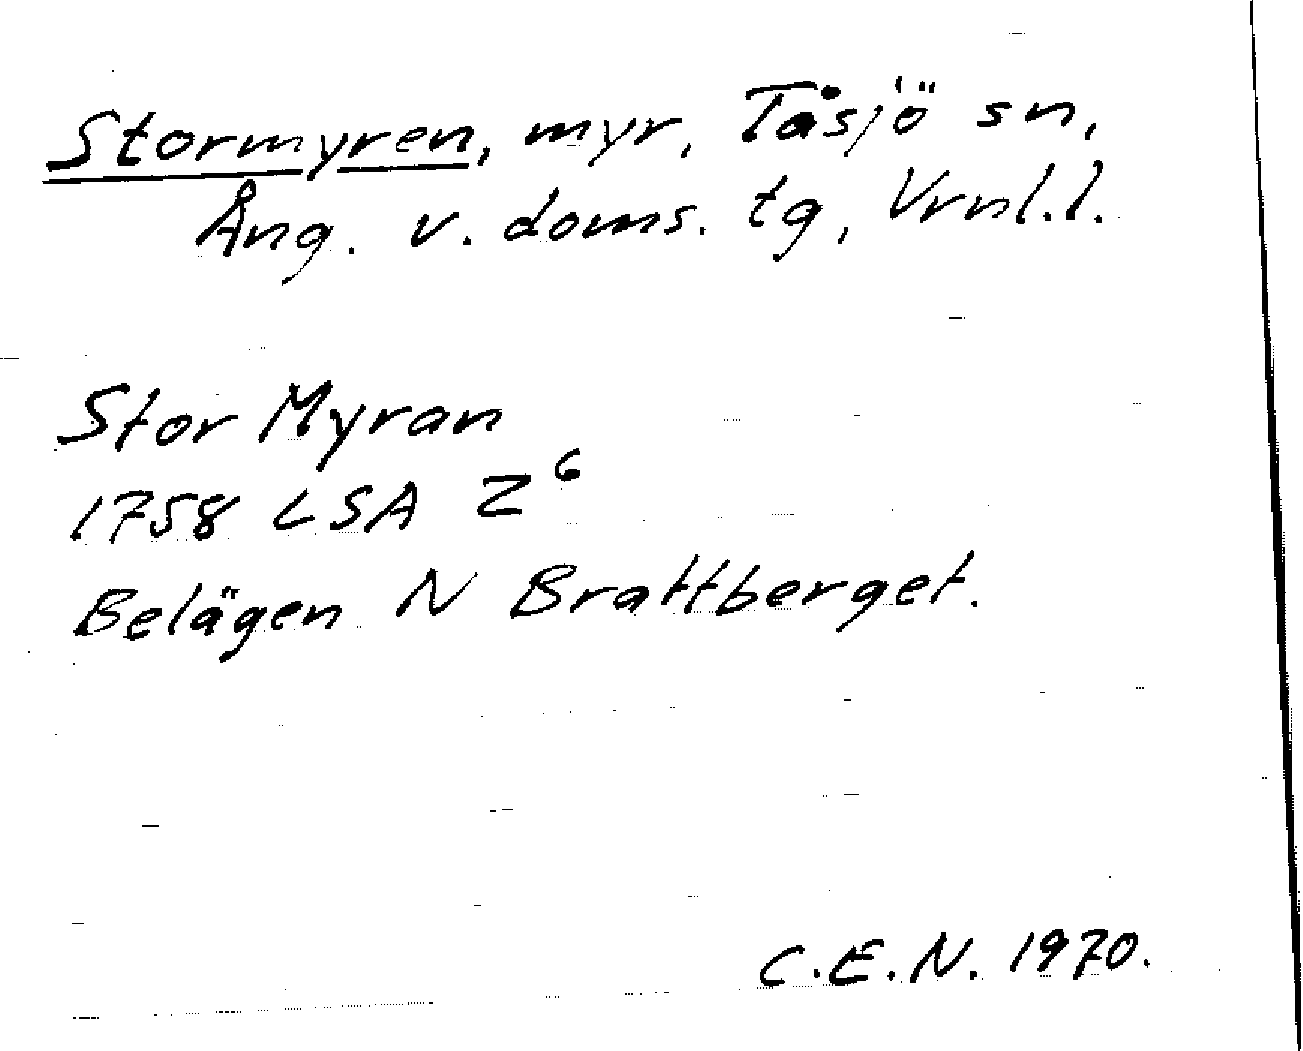 Stormyren, myr, Tåsjö sn,
Ång. v. doms. tg, Vrnl.l.
Stor Myran
1758 LSA Z⁶
Belägen N Brattberget.
C.E.N. 1970.